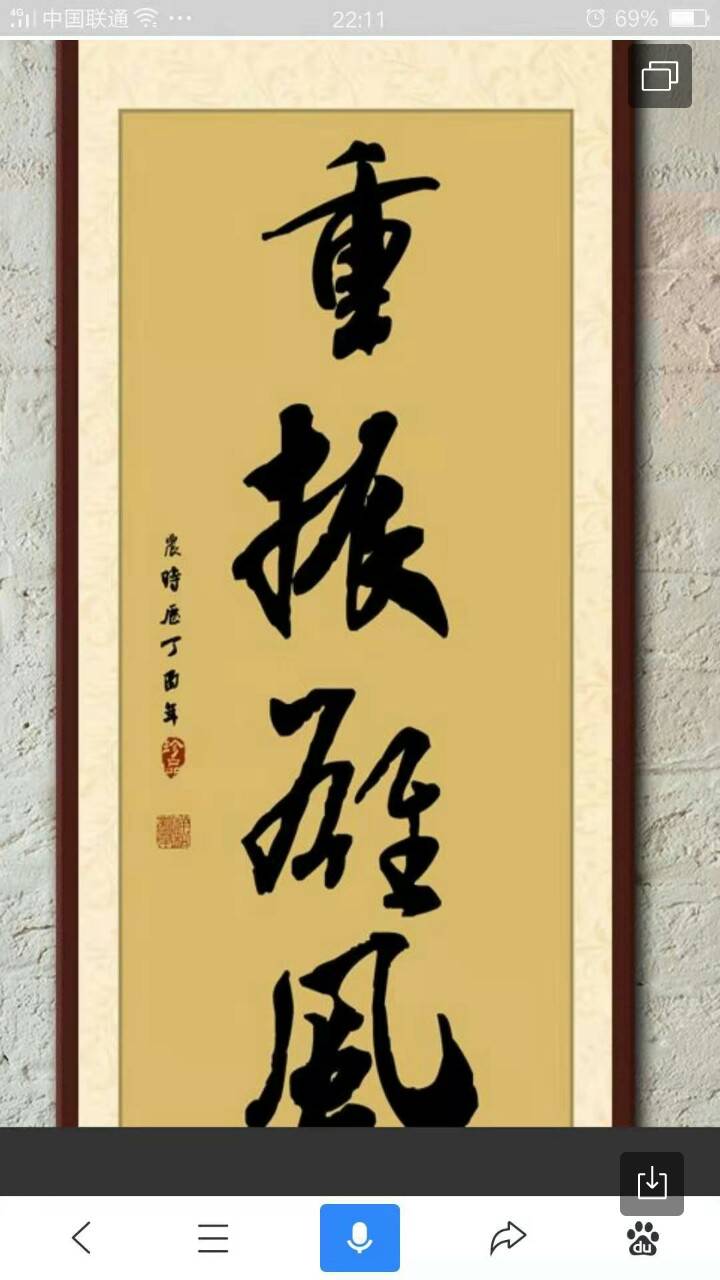 4G 中国联通 ... 22:11 69%
重振雄風
農時歷丁酉年
珍品
du